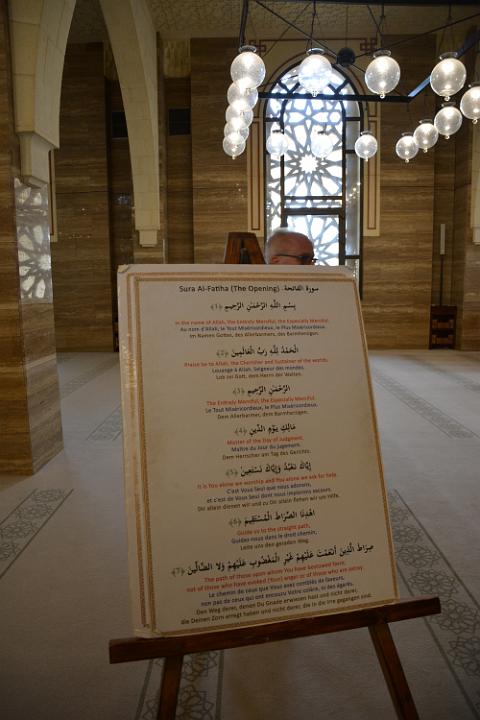 Sura Al-Fatiha (The Opening) سورة الفاتحة.
بِسْمِ اللَّهِ الرَّحْمَٰنِ الرَّحِيمِ ﴿1﴾
In the name of Allah, the Entirely Merciful, the Especially Merciful.
Au nom d'Allah, le Tout Miséricordieux, le Plus Miséricordieux.
Im Namen Gottes, des Allerbarmers, des Barmherzigen.
الْحَمْدُ لِلَّهِ رَبِّ الْعَالَمِينَ ﴿2﴾
Praise be to Allah, the Cherisher and Sustainer of the worlds.
Louange à Allah, Seigneur des mondes.
Lob sei Gott, dem Herrn der Welten.
الرَّحْمَٰنِ الرَّحِيمِ ﴿3﴾
The Entirely Merciful, the Especially Merciful.
Le Tout Miséricordieux, le Plus Miséricordieux.
Dem Allerbarmer, dem Barmherzigen.
مَالِكِ يَوْمِ الدِّينِ ﴿4﴾
Master of the Day of Judgment.
Maître du Jour du Jugement.
Dem Herrscher am Tag des Gerichts.
إِيَّاكَ نَعْبُدُ وَإِيَّاكَ نَسْتَعِينُ ﴿5﴾
It is You alone we worship and You alone we ask for help.
C'est Vous Seul que nous adorons,
et c'est de Vous Seul dont nous implorons secours.
Dir allein dienen wir und zu Dir allein flehen wir um Hilfe.
اهْدِنَا الصِّرَاطَ الْمُسْتَقِيمَ ﴿6﴾
Guide us to the straight path,
Guidez-nous dans le droit chemin,
Leite uns den geraden Weg.
صِرَاطَ الَّذِينَ أَنْعَمْتَ عَلَيْهِمْ غَيْرِ الْمَغْضُوبِ عَلَيْهِمْ وَلَا الضَّالِّينَ ﴿7﴾
The path of those upon whom You have bestowed favor,
not of those who have evoked (Your) anger or of those who are astray.
Le chemin de ceux que Vous avez comblés de faveurs,
non pas de ceux qui ont encouru Votre colère, ni des égarés.
Den Weg derer, denen Du Gnade erwiesen hast und nicht derer,
die Deinen Zorn erregt haben und nicht derer, die in die Irre gegangen sind.